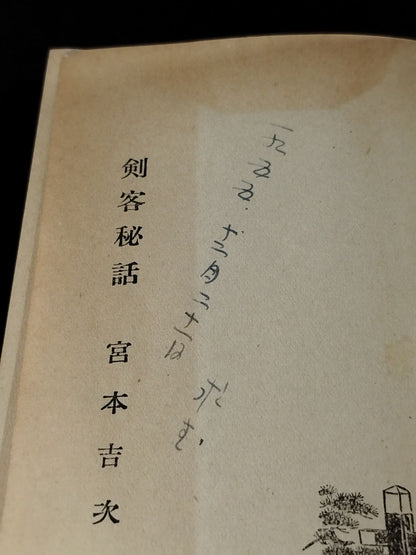 一九五五.十二月二十一日 求む.
剣客秘話 宮本吉次